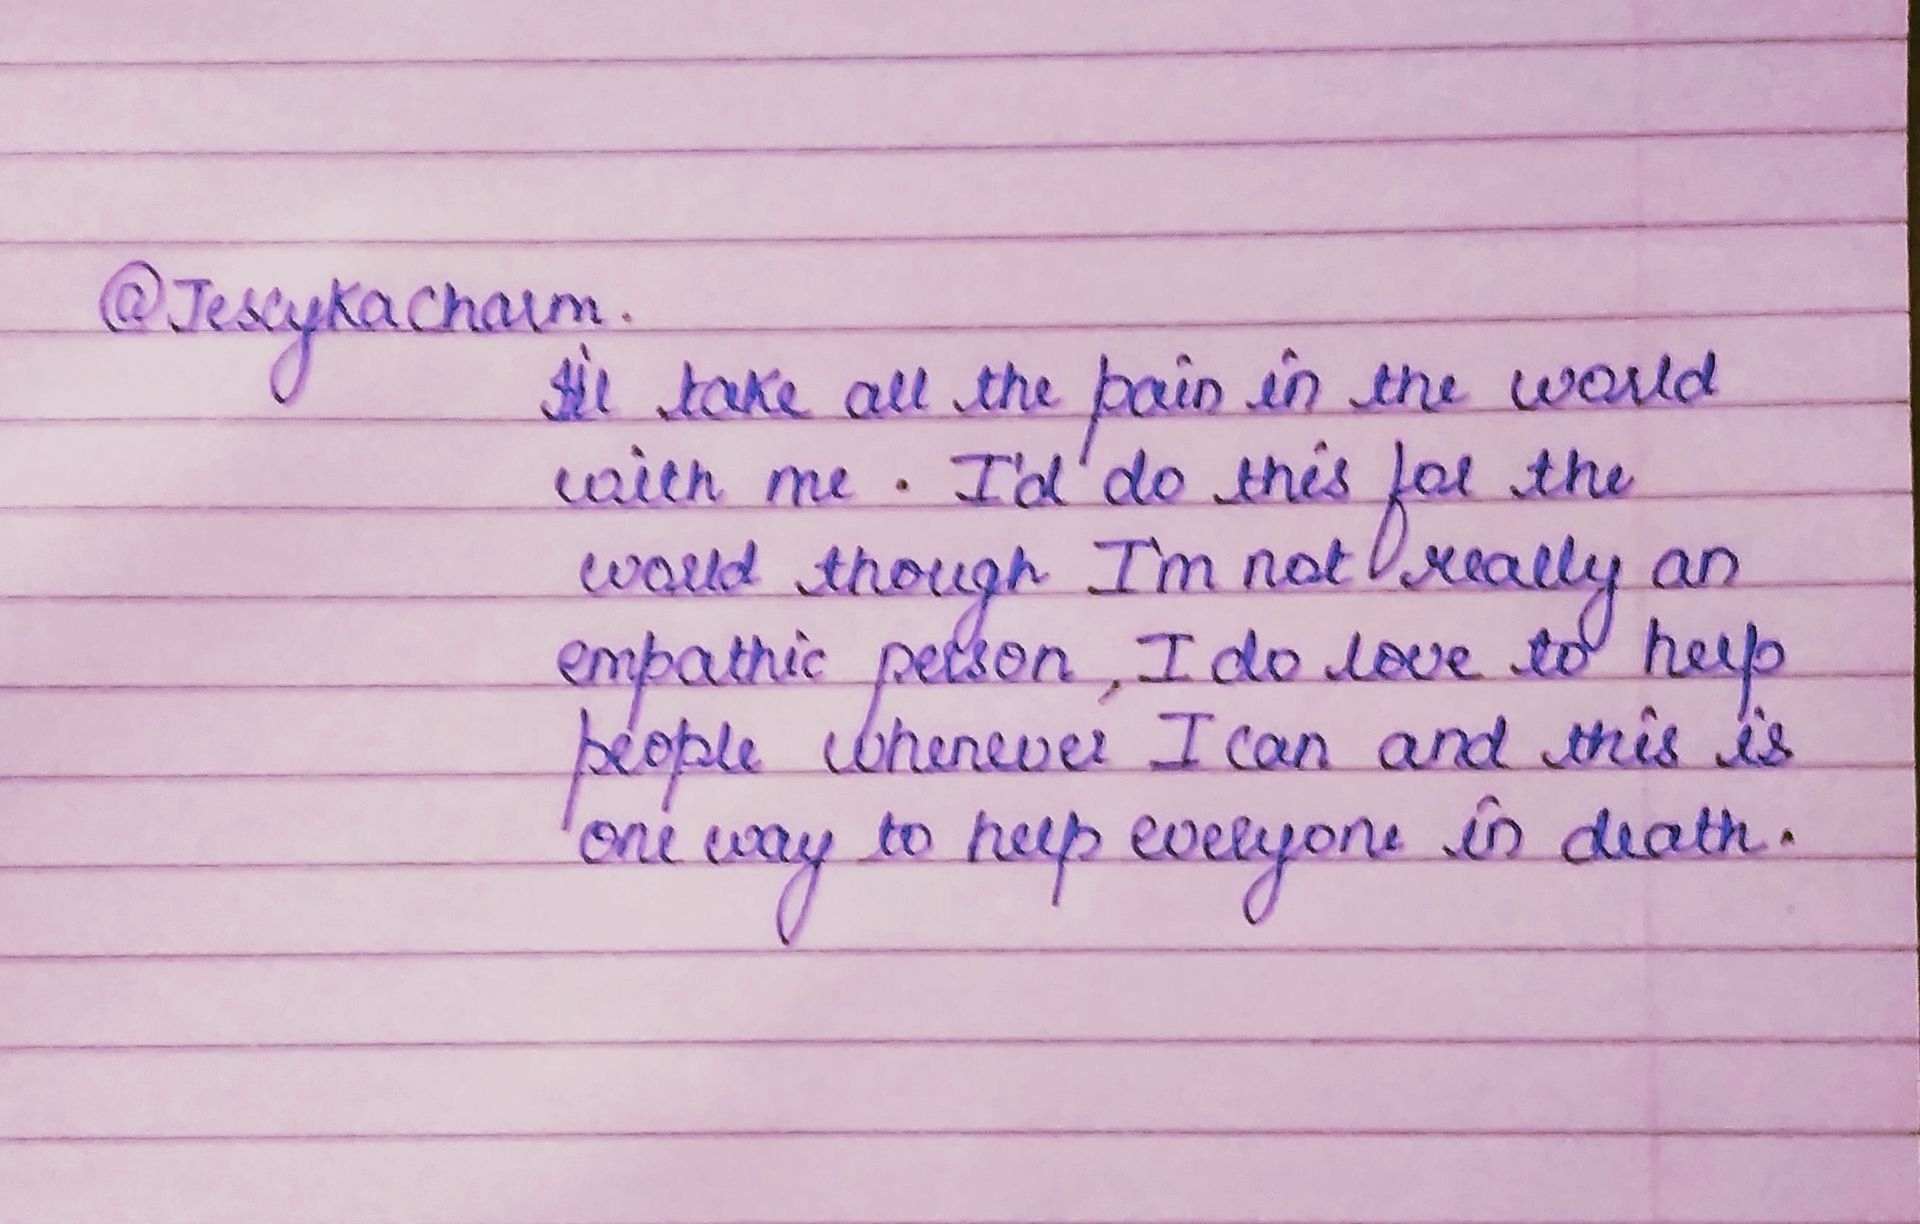 @Jescykacharm.
I'll take all the pain in the world
with me. I'd do this for the
world though I'm not really an
empathic person, I do love to help
people whenever I can and this is
one way to help everyone in death.